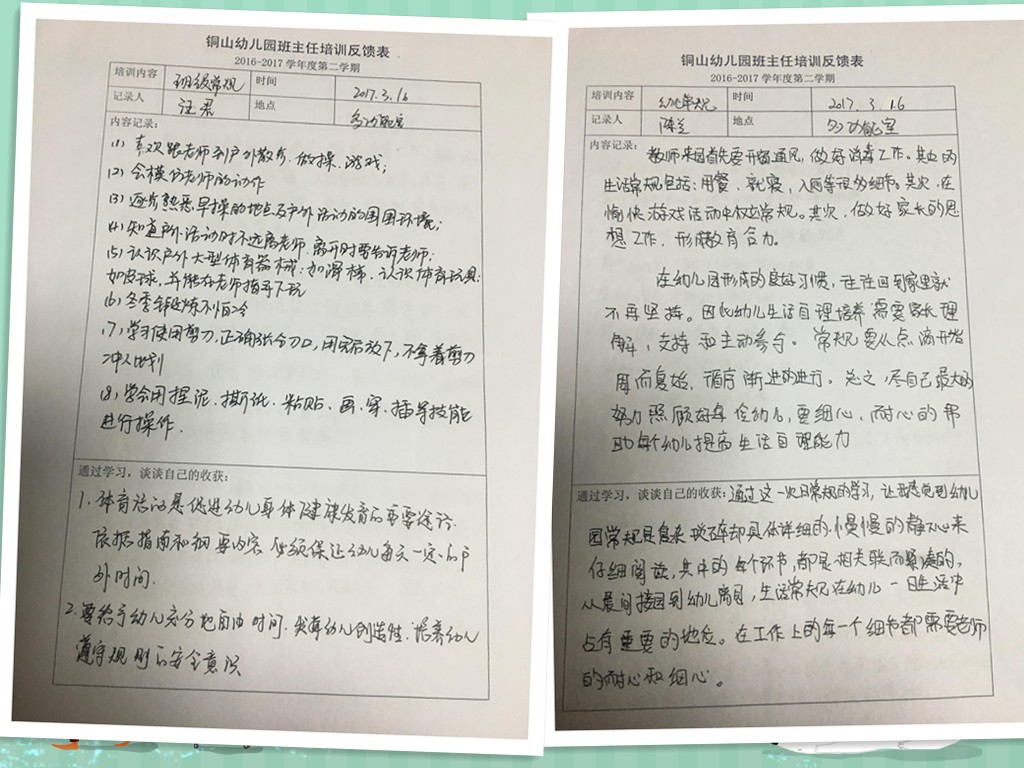 铜山幼儿园班主任培训反馈表
2016-2017 学年度第二学期
培训内容 班级常规 时间 2017.3.16
记录人 汪君 地点 多功能室
内容记录:
(1) 喜欢跟老师到户外散步、做操、游戏;
(2) 会模仿老师的动作
(3) 逐步熟悉早操的地点及户外活动的周围环境;
(4) 知道户外活动时不远离老师,离开时要告诉老师;
(5) 认识户外大型体育器械:如滑梯、认识体育玩具:
如皮球,并能在老师指导下玩
(6) 冬季锻炼不怕冷
(7) 学习使用剪刀,正确张合刀口,用完后放下,不拿着剪刀
冲人比划
(8) 学会用捏泥、撕纸、粘贴、画、穿、插等技能
进行操作.
通过学习,谈谈自己的收获:
1. 体育活动是促进幼儿身体健康发育的重要途径.
依据指南和纲要内容 必须保证幼儿每天一定的户
外时间.
2. 要给予幼儿充分地自由时间.发挥幼儿创造性.培养幼儿
遵守规则的安全意识
铜山幼儿园班主任培训反馈表
2016-2017 学年度第二学期
培训内容 幼儿常规 时间 2017.3.16
记录人 陈兰 地点 多功能室
内容记录: 教师来园首先要开窗通风,做好消毒工作。其次的
生活常规包括:用餐、就寝,入厕等很多细节。其次,在
愉快游戏活动中树立常规。其次,做好家长的思
想工作,形成教育合力。
在幼儿园形成的良好习惯,往往回到家里就
不再坚持。因此幼儿生活自理培养需要家长理
解,支持和主动参与。常规要从点滴开始
周而复始,循序渐进的进行。总之,尽自己最大的
努力照顾好每位幼儿,更细心、耐心的帮
助每个幼儿提高生活自理能力
通过学习,谈谈自己的收获: 通过这一次日常规的学习,让我感觉到幼儿
园常规是复杂琐碎却具体详细的,慢慢的静下心来
仔细阅读,其中的每个环节,都是相关联而紧凑的,
从晨间接园到幼儿离园,生活常规在幼儿一日生活中
占有重要的地位。在工作上的每一个细节都需要老师
的耐心和细心。